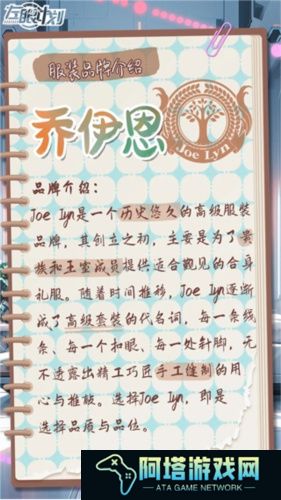 左眼计划
服装品牌介绍
乔伊恩
Joe Lyn
品牌介绍：
Joe Lyn是一个历史悠久的高级服装
品牌，其创立之初，主要是为了贵
族和王室成员提供适合觐见的合身
礼服。随着时间推移，Joe Lyn逐渐
成了高级套装的代名词，每一条线
条、每一个扣眼、每一处针脚，无
不透露出精工巧匠手工缝制的用
心与推板。选择Joe Lyn，即是
选择品质与品位。
阿塔游戏网
ATA GAME NETWORK